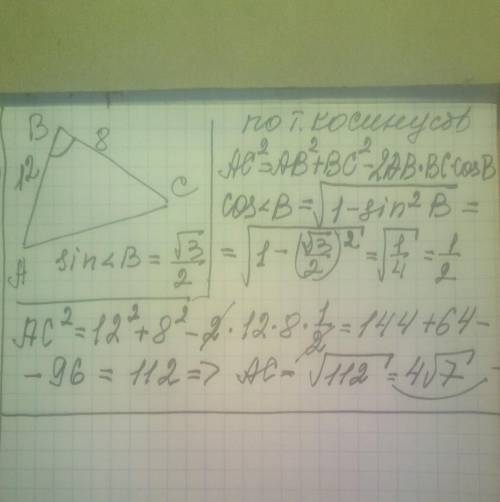 B
8
12
C
A
sin<B = √3/2
по т. косинусов
AC² = AB² + BC² - 2AB·BC cosB
cos<B = √(1 - sin² B) =
= √(1 - (√3/2)²) = √(1/4) = 1/2
AC² = 12² + 8² - 2 · 12 · 8 · 1/2 = 144 + 64 -
- 96 = 112 => AC = √112 = 4√7